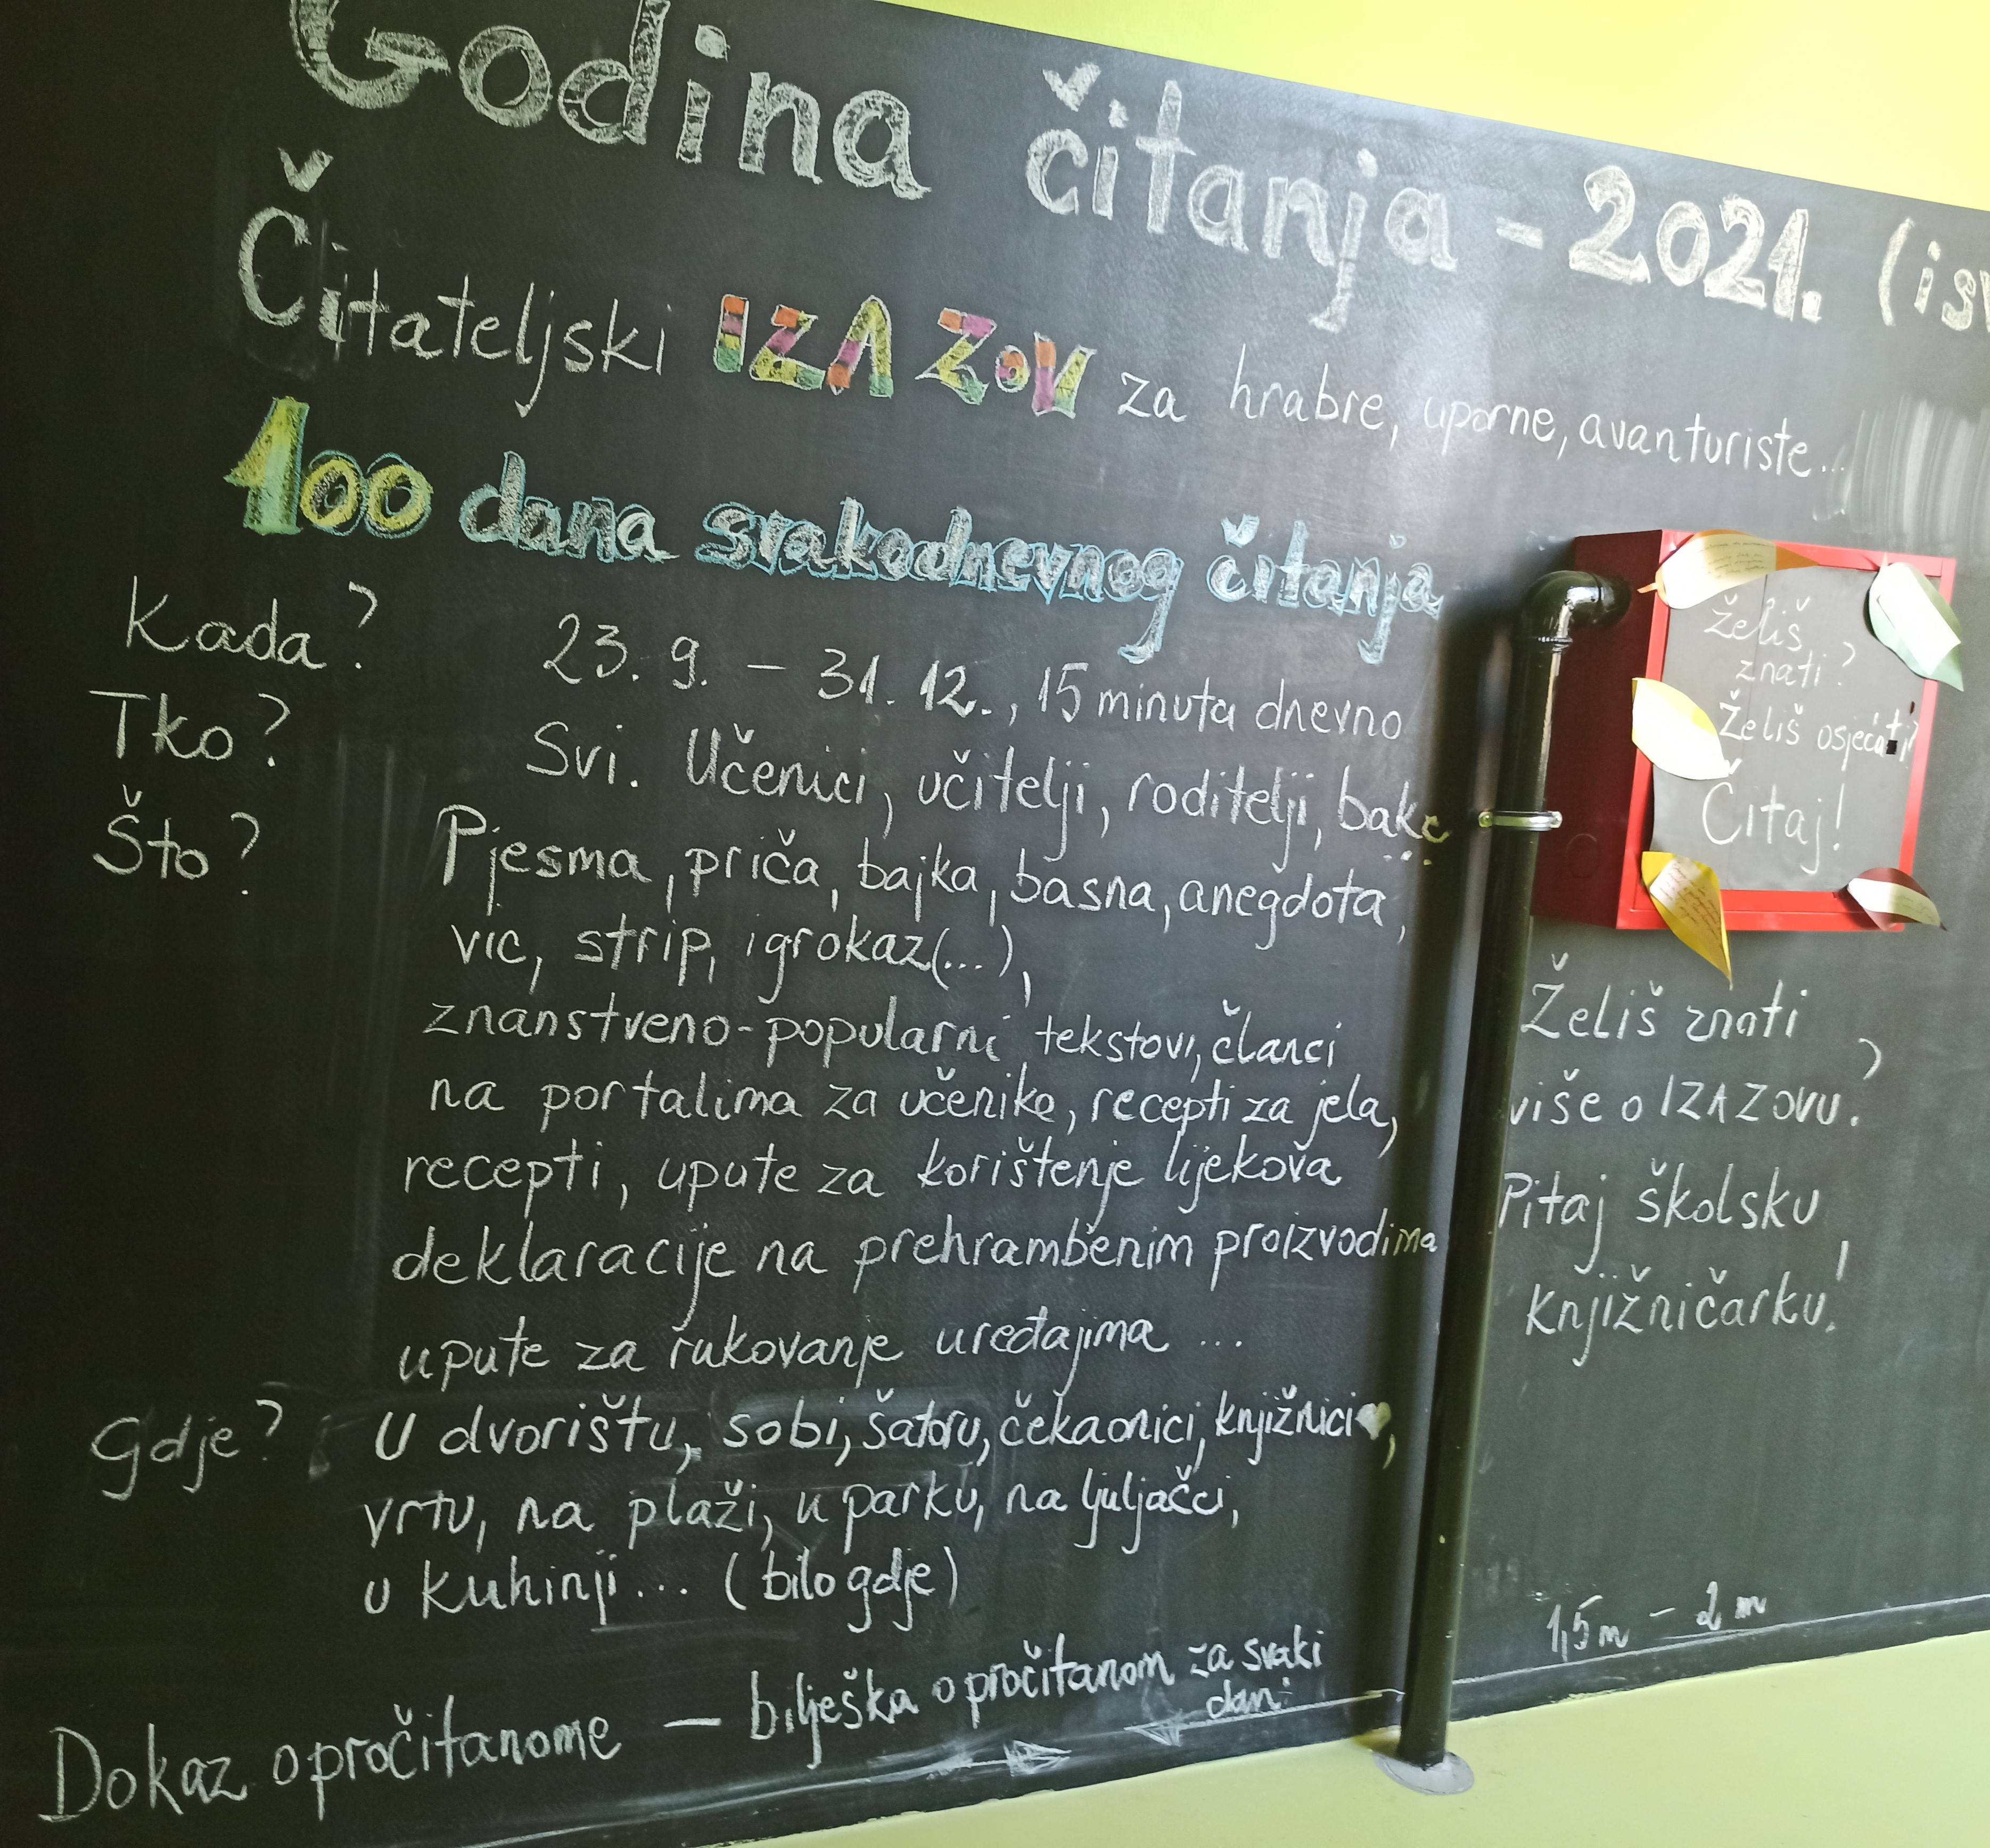 Godina čitanja - 2021.
Čitateljski IZAZOV za hrabre, uporne, avanturiste...
100 dana svakodnevnog čitanja
Kada? 23. 9. – 31. 12., 15 minuta dnevno
Tko? Svi. Učenici, učitelji, roditelji, bake...
Što? Pjesma, priča, bajka, basna, anegdota,
vic, strip, igrokaz(...),
znanstveno-popularni tekstovi, članci
na portalima za učenike, recepti za jela,
recepti, upute za korištenje lijekova
deklaracije na prehrambenim proizvodima
upute za rukovanje uređajima ...
Gdje? U dvorištu, sobi, šatoru, čekaonici, knjižnici,
vrtu, na plaži, u parku, na ljuljački,
u kuhinji... (bilo gdje)
Dokaz o pročitanome – bilješka o pročitanom za svaki
dan
Želiš
znati?
Želiš osjećati?
Čitaj!
Želiš znati
više o IZAZOVU?
Pitaj školsku
knjižničarku!
1,5 m – 2 m